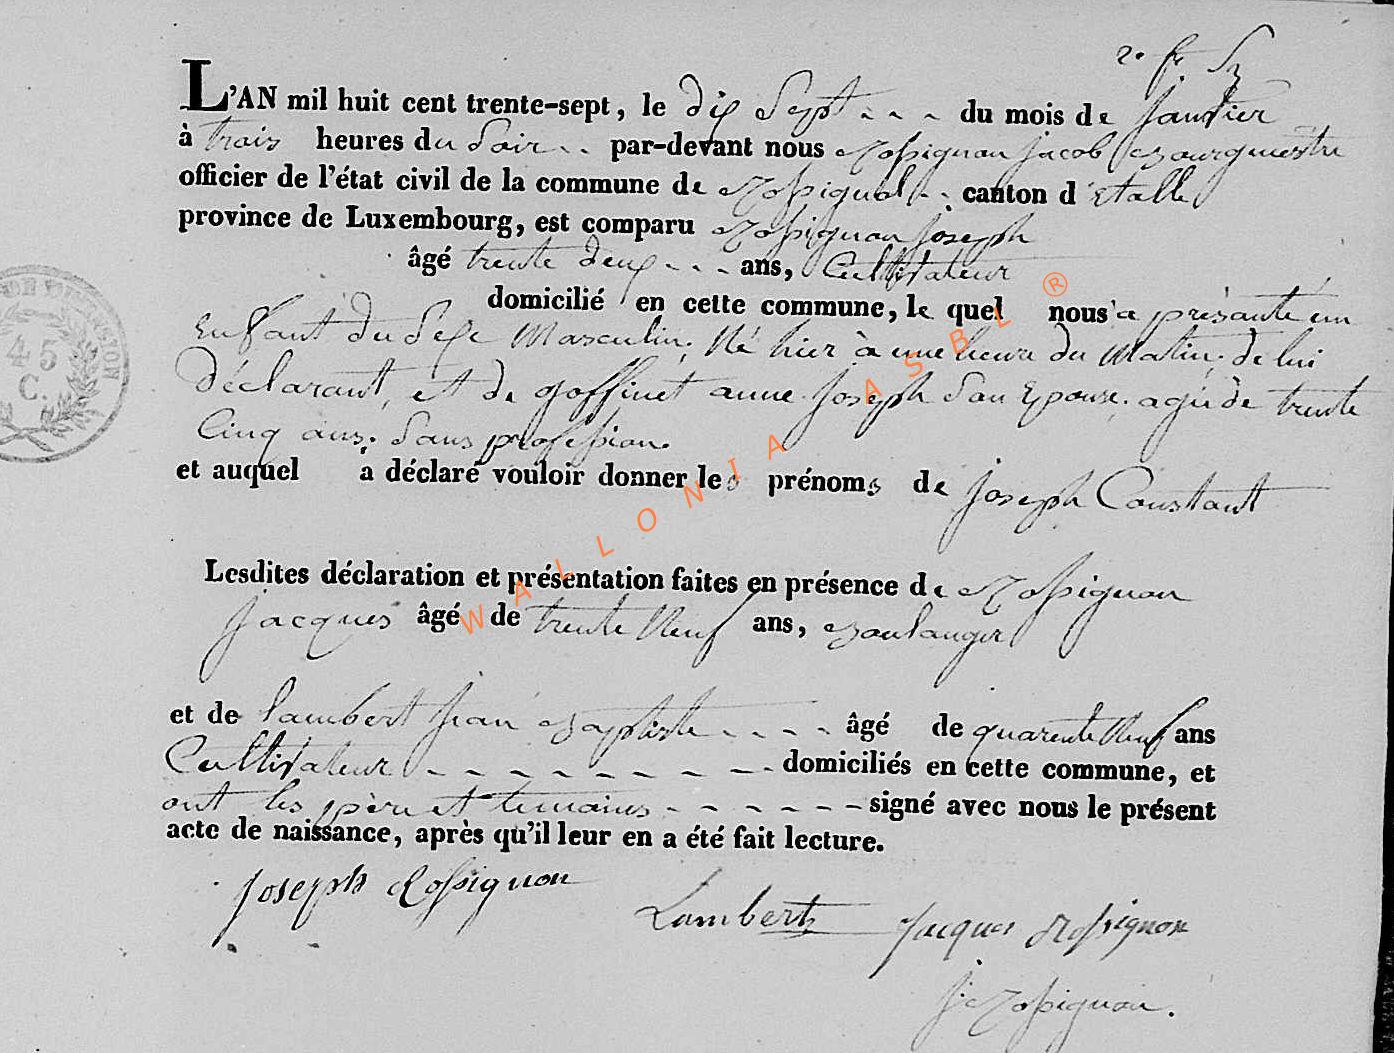 L'AN mil huit cent trente-sept, le dix Sept - - - du mois de Janvier
à trois heures du Soir - - par-devant nous Rossignon Jacob Bourguestre
officier de l'état civil de la commune de Rossignol - - canton d'Etalle
province de Luxembourg, est comparu Rossignon Joseph
âgé trente deux - - - ans, Cultivateur
domicilié en cette commune, le quel nous a présenté un
Enfant du Sexe Masculin, Né hier à une heure du Matin, de lui
déclarant, et de Goffinet anne Joseph Son Epouse, agée de trente
Cinq ans. Sans profession.
et auquel a déclaré vouloir donner les prénoms de Joseph Constant
Lesdites déclaration et présentation faites en présence de Rossignon
Jacques âgé de trente Neuf ans, Boulanger
et de Lambert Jean Baptiste - - - - âgé de quarente Neuf ans
Cultivateur - - - - - - - - - domiciliés en cette commune, et
ont les père et temoins - - - - - - signé avec nous le présent
acte de naissance, après qu'il leur en a été fait lecture.
Joseph Rossignon
Lambert Jacques Rossignon
J. Rossignon.
45
C.
WALLONIA ASBL ®